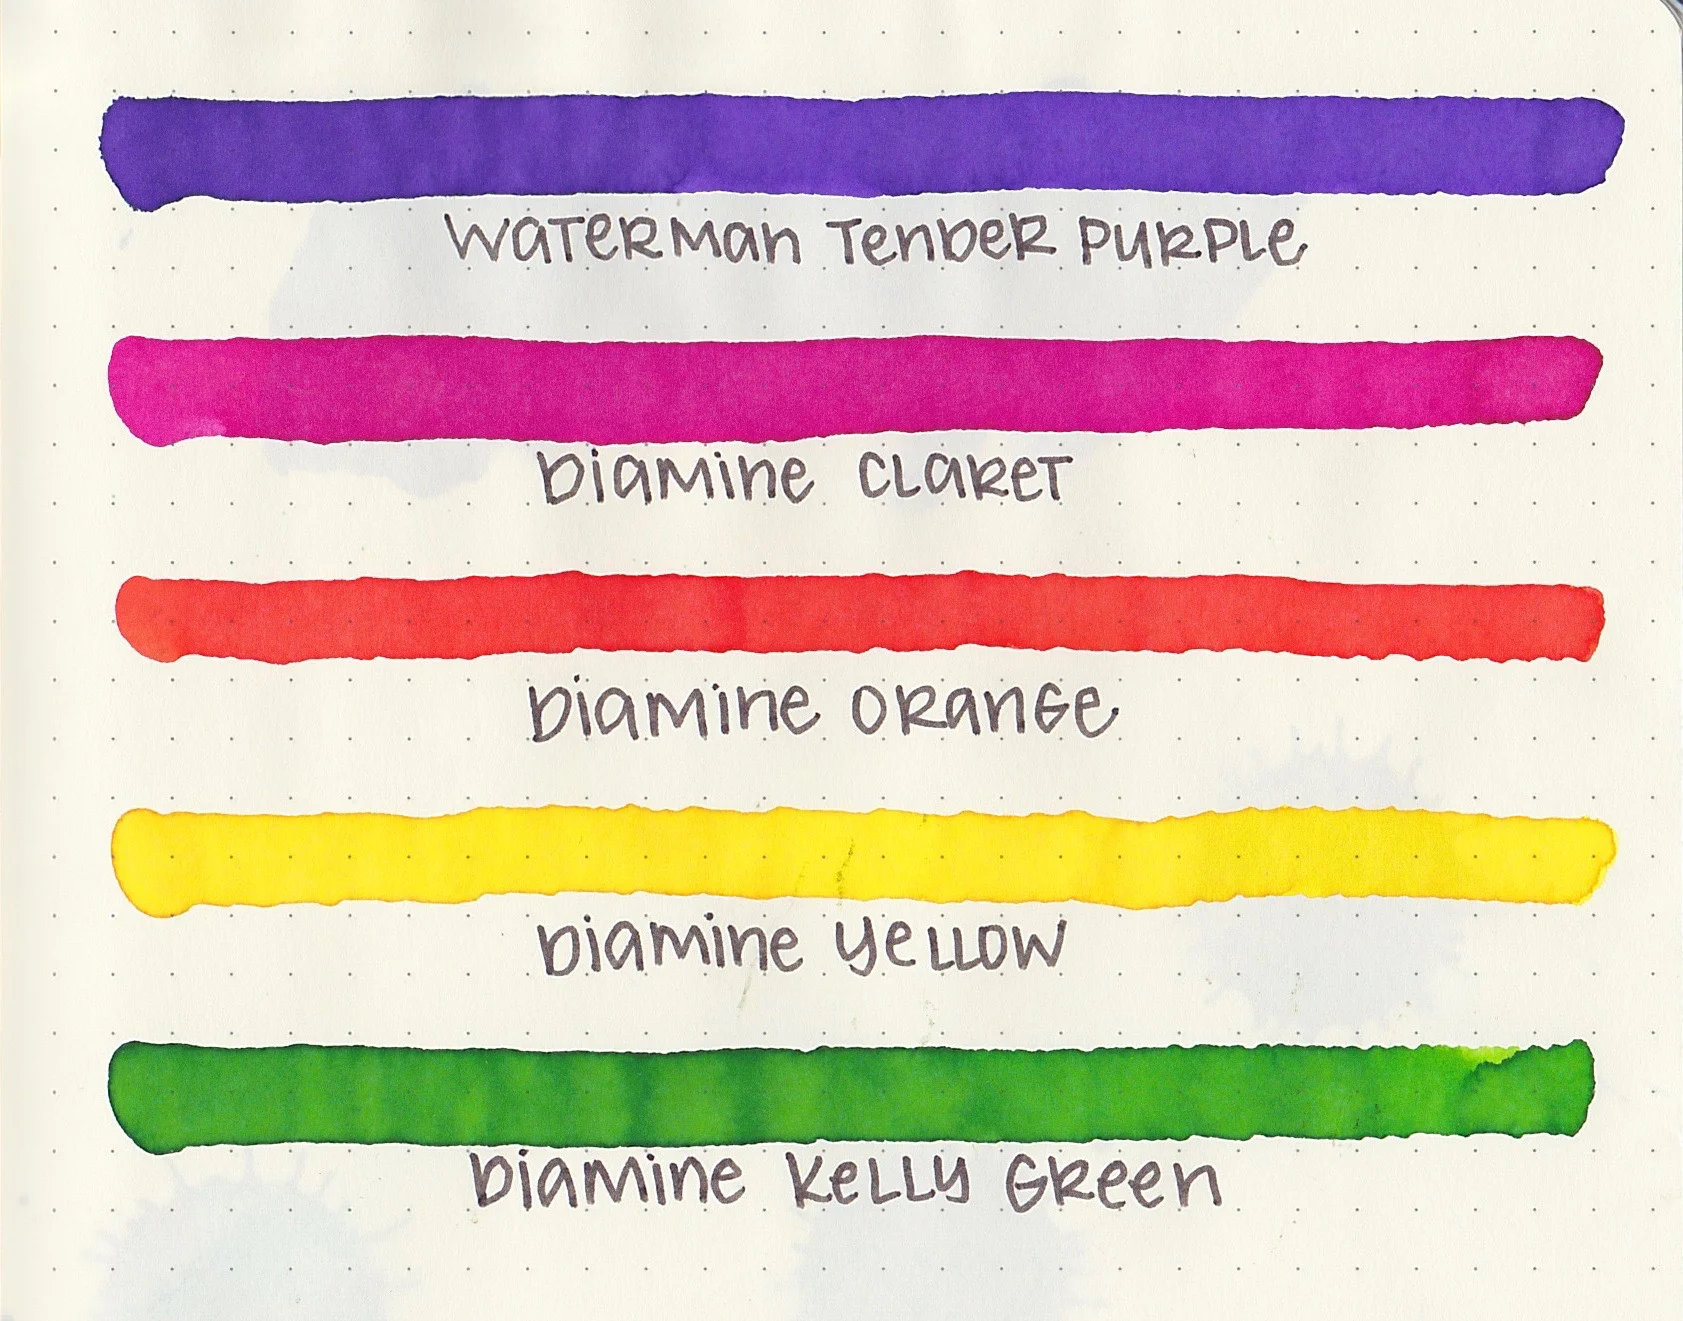 Waterman Tender Purple
Diamine Claret
Diamine Orange
Diamine Yellow
Diamine Kelly Green